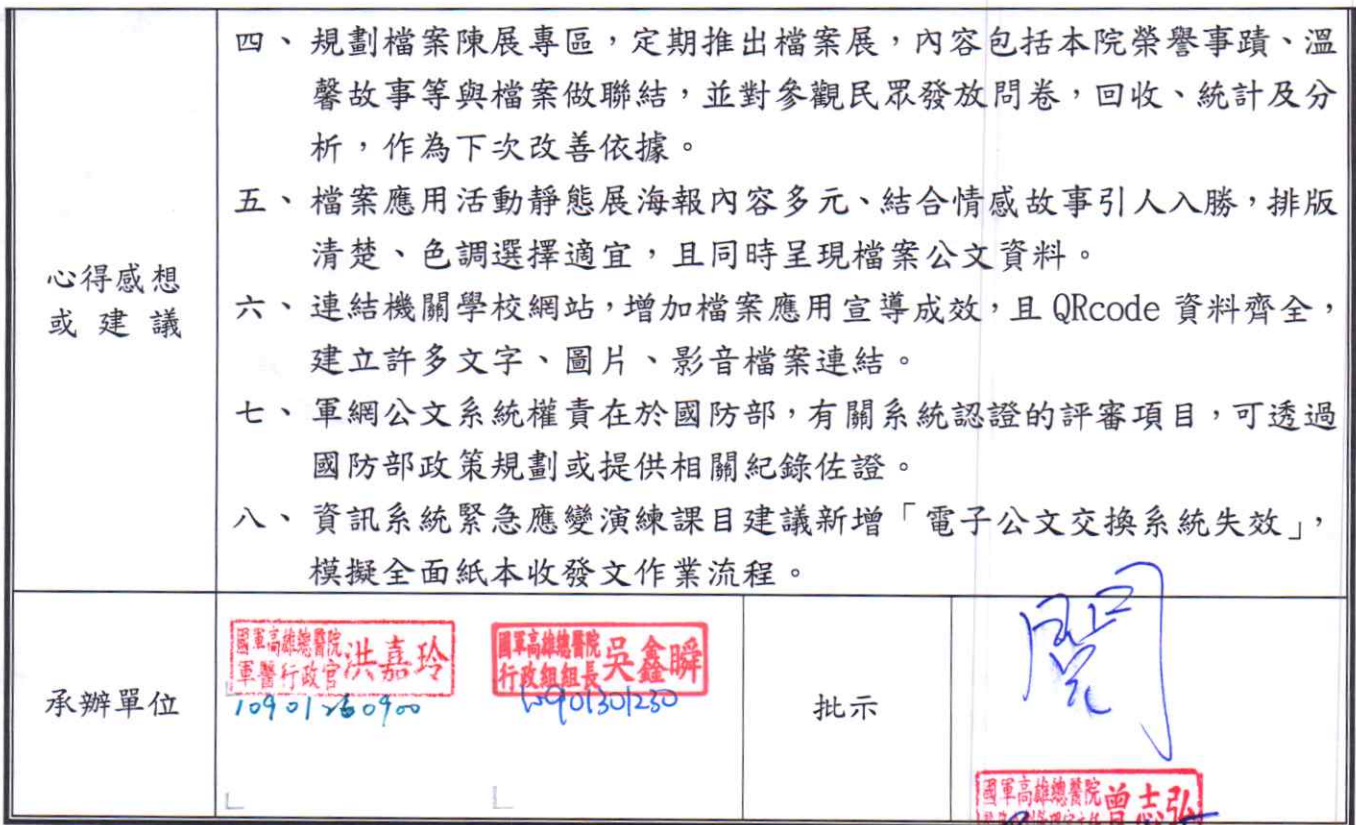 四、規劃檔案陳展專區，定期推出檔案展，內容包括本院榮譽事蹟、溫
馨故事等與檔案做聯結，並對參觀民眾發放問卷，回收、統計及分
析，作為下次改善依據。
五、檔案應用活動靜態展海報內容多元、結合情感故事引人入勝，排版
清楚、色調選擇適宜，且同時呈現檔案公文資料。
心得感想
或建議
六、連結機關學校網站，增加檔案應用宣導成效，且QRcode資料齊全，
建立許多文字、圖片、影音檔案連結。
七、軍網公文系統權責在於國防部，有關系統認證的評審項目，可透過
國防部政策規劃或提供相關紀錄佐證。
八、資訊系統緊急應變演練課目建議新增「電子公文交換系統失效」，
模擬全面紙本收發文作業流程。
承辦單位
國軍高雄總醫院
軍醫行政官
洪嘉玲
國軍高雄總醫院
行政組組長
吳鑫瞬
10901301230
批示
閱
國軍高雄總醫院
曾志弘